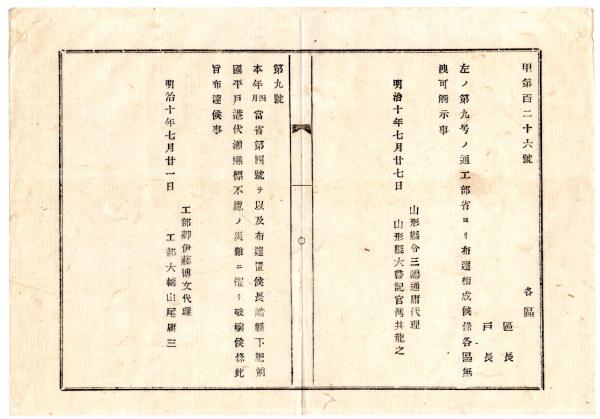 甲第百二十六號
各區
區長
戸長
左ノ第九号ノ通工部省ヨリ布達相成候條各區無
洩可觸示事
明治十年七月廿七日
山形縣令三島通庸代理
山形縣大書記官薄井龍之
第九號
本年四月當省第四號ヲ以及布達置候長崎縣下肥前
國平戸港伏瀬礁標不慮ノ災難ニ罹リ破壞候條此
旨布達候事
明治十年七月廿一日
工部卿伊藤博文代理
工部大輔山尾庸三